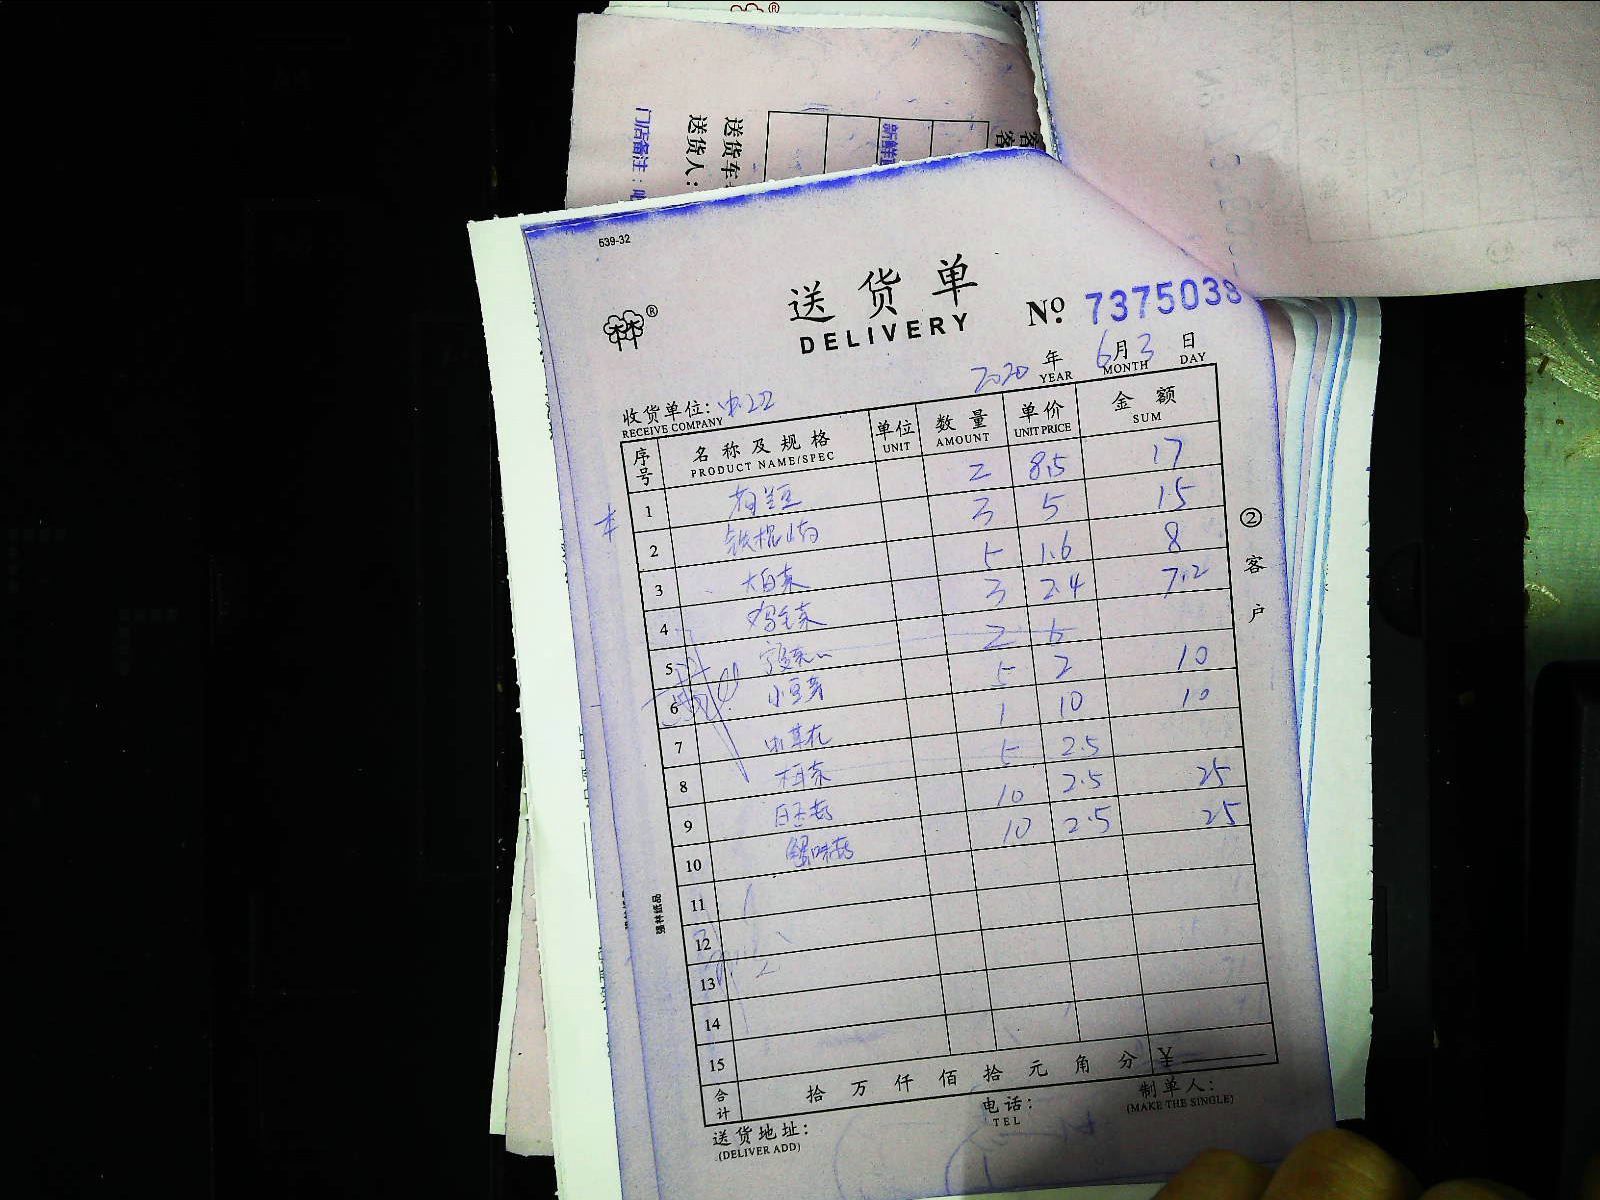 新鲜
送货车
送货人:
门店备注:
539-32
®
送货单
DELIVERY
№ 7375038
2020 年 6 月 3 日
YEAR MONTH DAY
收货单位:
RECEIVE COMPANY
序号 名称及规格 单位 数量 单价 金额
PRODUCT NAME/SPEC UNIT AMOUNT UNIT PRICE SUM
1 荷兰豆 2 8.5 17
2 铁棍山药 3 5 15
3 大白菜 5 1.6 8
4 鸡毛菜 3 2.4 7.2
5 2 6
6 小豆芽 5 2 10
7 虫草花 1 10 10
8 5 2.5
9 白玉菇 10 2.5 25
10 蟹味菇 10 2.5 25
11
12
13
14
15
合计 拾 万 仟 佰 拾 元 角 分 ¥
送货地址: 电话: 制单人:
(DELIVER ADD) TEL (MAKE THE SINGLE)
② 客户
强林纸品